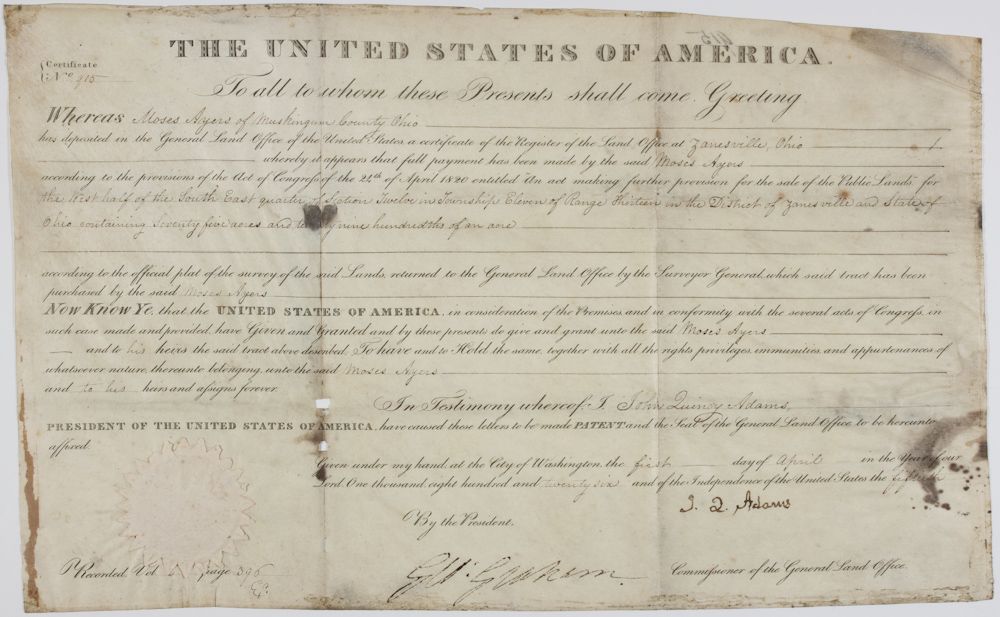 THE UNITED STATES OF AMERICA.
Certificate
No. 915
To all to whom these Presents shall come, Greeting
Whereas Moses Ayers of Muskingum County Ohio
has deposited in the General Land Office of the United States a certificate of the Register of the Land Office at Zanesville, Ohio
whereby it appears that full payment has been made by the said Moses Ayers
according to the provisions of the Act of Congress of the 24th of April 1820 entitled "An act making further provision for the sale of the Public Lands" for
the West half of the South East quarter of Section Twelve in Township Eleven of Range Thirteen in the District of Zanesville and State of
Ohio containing Seventy five acres and nine hundredths of an acre
according to the official plat of the survey of the said Lands, returned to the General Land Office by the Surveyor General, which said tract has been
purchased by the said Moses Ayers
Now Know Ye, that the UNITED STATES OF AMERICA, in consideration of the Premises and in conformity with the several acts of Congress, in
such case made and provided, have Given and Granted and by these presents do give and grant unto the said Moses Ayers
and to his heirs the said tract above described. To have and to Hold the same, together with all the rights privileges immunities and appurtenances of
whatsoever nature thereunto belonging, unto the said Moses Ayers
and to his heirs and assigns forever.
In Testimony whereof, I, John Quincy Adams,
PRESIDENT OF THE UNITED STATES OF AMERICA, have caused these letters to be made PATENT and the Seal of the General Land Office to be hereunto
affixed.
Given under my hand, at the City of Washington, the first day of April in the Year of our
Lord One thousand eight hundred and twenty six and of the Independence of the United States the fiftieth
J. Q. Adams
By the President.
Geo. Graham Commissioner of the General Land Office.
Recorded, Vol page 396